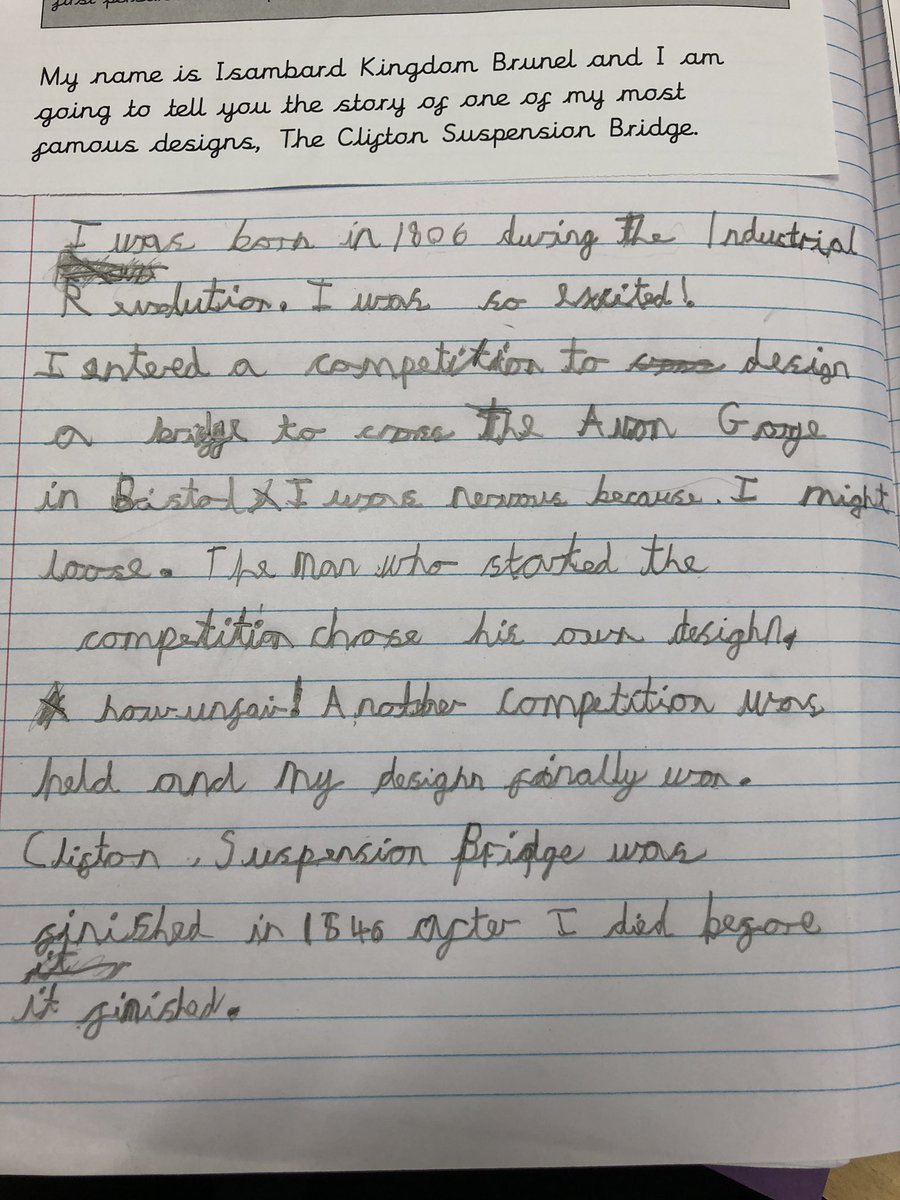 My name is Isambard Kingdom Brunel and I am
going to tell you the story of one of my most
famous designs, The Clifton Suspension Bridge.
I was born in 1806 during the Industrial
Revolution. I was so excited!
I entered a competition to design
a bridge to cross the Avon Gorge
in Bristol I was nervous because. I might
loose. The man who started the
competition chose his own desighn,
how unfair! Another competition was
held and my desighn finally won.
Clifton Suspension Bridge was
finished in 1846 after I died before
it
it finished.